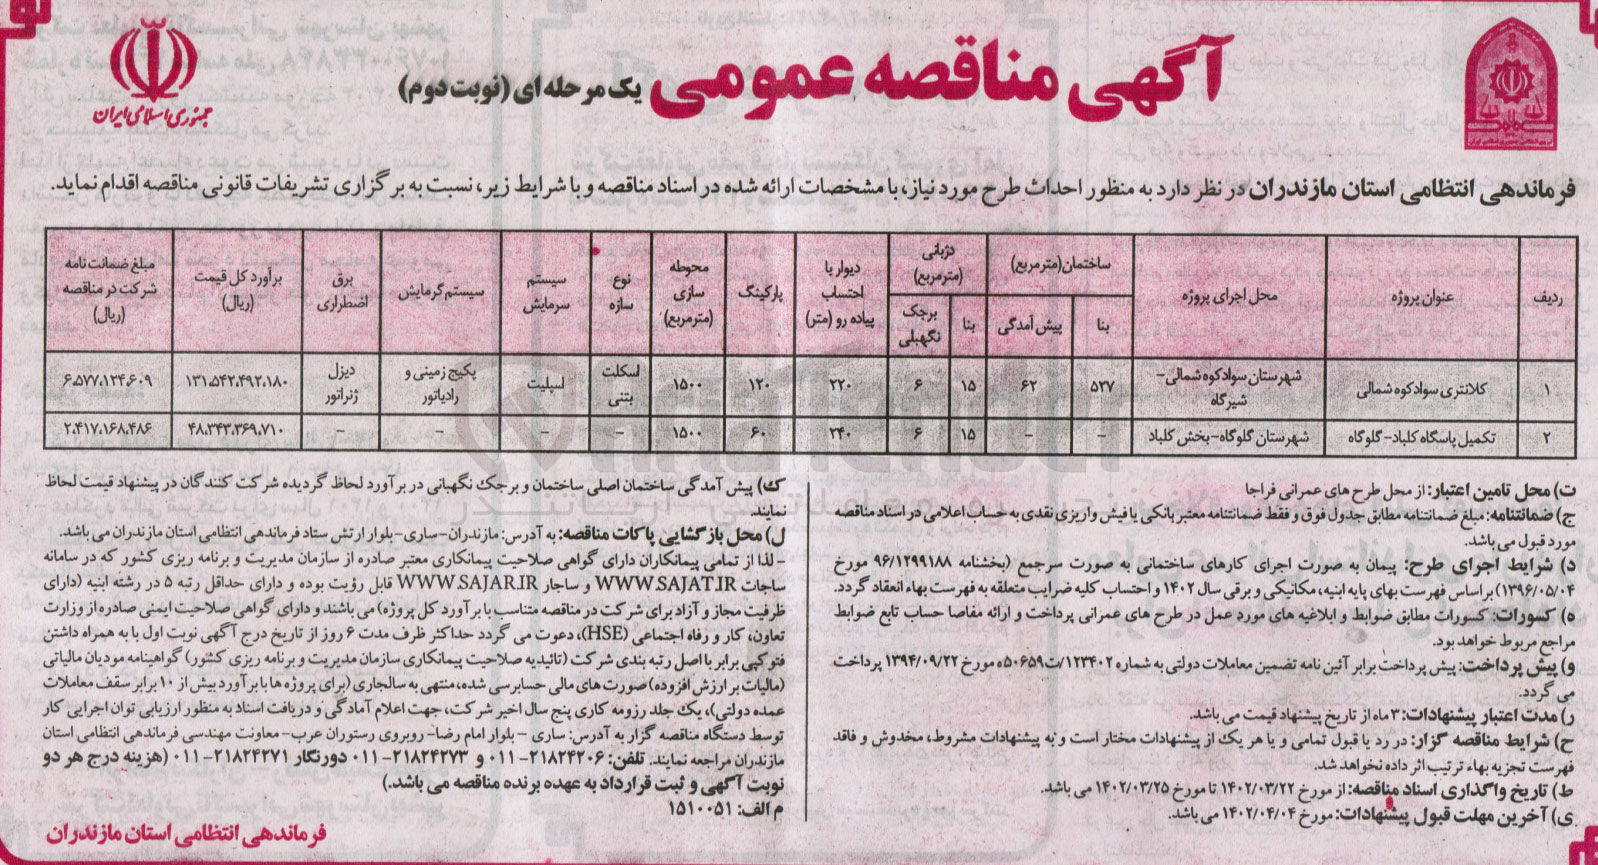 آگهی مناقصه عمومی یک مرحله ای (نوبت دوم)
جمهوری اسلامی ایران
فرماندهی انتظامی استان مازندران در نظر دارد به منظور احداث طرح مورد نیاز، با مشخصات ارائه شده در اسناد مناقصه و با شرایط زیر، نسبت به برگزاری تشریفات قانونی مناقصه اقدام نماید.
ردیف عنوان پروژه محل اجرای پروژه ساختمان(مترمربع) بنا پیش آمدگی دژبانی (مترمربع) بنا برجک نگهبانی دیوار با احتساب پیاده رو (متر) پارکینگ محوطه سازی (مترمربع) نوع سازه سیستم سرمایش سیستم گرمایش برق اضطراری برآورد کل قیمت (ریال) مبلغ ضمانت نامه شرکت در مناقصه (ریال)
۱ کلانتری سوادکوه شمالی شهرستان سوادکوه شمالی- شیرگاه ۵۲۷ ۶۲ ۱۵ ۶ ۲۲۰ ۱۲۰ ۱۵۰۰ اسکلت بتنی اسپلیت پکیج زمینی و رادیاتور دیزل ژنراتور ۱۳۱،۵۴۲،۴۹۲،۱۸۰ ۶،۵۷۷،۱۲۴،۶۰۹
۲ تکمیل پاسگاه کلباد-گلوگاه شهرستان گلوگاه-بخش کلباد - - ۱۵ ۶ ۲۴۰ ۶۰ ۱۵۰۰ - - - - ۴۸،۳۴۳،۳۶۹،۷۱۰ ۲،۴۱۷،۱۶۸،۴۸۶
ت) محل تامین اعتبار: از محل طرح های عمرانی فراجا
ج) ضمانتنامه: مبلغ ضمانتنامه مطابق جدول فوق و فقط ضمانتنامه معتبر بانکی یا فیش واریزی نقدی به حساب اعلامی در اسناد مناقصه
مورد قبول می باشد.
د) شرایط اجرای طرح: پیمان به صورت اجرای کارهای ساختمانی به صورت سرجمع (بخشنامه ۹۶/۱۲۹۹۱۸۸ مورخ
۱۳۹۶/۰۵/۰۴) بر اساس فهرست بهای پایه ابنیه، مکانیکی و برقی سال ۱۴۰۲ و احتساب کلیه ضرایب متعلقه به فهرست بهاء انعقاد گردد.
ه) کسورات: کسورات مطابق ضوابط و ابلاغیه های مورد عمل در طرح های عمرانی پرداخت و ارائه مفاصا حساب تابع ضوابط
مراجع مربوط خواهد بود.
و) پیش پرداخت: پیش پرداخت برابر آئین نامه تضمین معاملات دولتی به شماره ۱۲۳۴۰۲/ت۵۰۶۵۹ه مورخ ۱۳۹۴/۰۹/۲۲ پرداخت
می گردد.
ر) مدت اعتبار پیشنهادات: ۳ ماه از تاریخ پیشنهاد قیمت می باشد.
ح) شرایط مناقصه گزار: در رد یا قبول تمامی و یا هر یک از پیشنهادات مختار است و به پیشنهادات مشروط، مخدوش و فاقد
فهرست تجزیه بهاء ترتیب اثر داده نخواهد شد.
ط) تاریخ واگذاری اسناد مناقصه: از مورخ ۱۴۰۲/۰۳/۲۲ تا مورخ ۱۴۰۲/۰۳/۲۵ می باشد.
ی) آخرین مهلت قبول پیشنهادات: مورخ ۱۴۰۲/۰۴/۰۴ می باشد.
ک) پیش آمدگی ساختمان اصلی ساختمان و برجک نگهبانی در برآورد لحاظ گردیده شرکت کنندگان در پیشنهاد قیمت لحاظ
نمایند.
ل) محل بازگشایی پاکات مناقصه: به آدرس: مازندران-ساری-بلوار ارتش ستاد فرماندهی انتظامی استان مازندران می باشد.
- لذا از تمامی پیمانکاران دارای گواهی صلاحیت پیمانکاری معتبر صادره از سازمان مدیریت و برنامه ریزی کشور که در سامانه
ساجات WWW.SAJAT.IR و ساجار WWW.SAJAR.IR قابل رؤیت بوده و دارای حداقل رتبه ۵ در رشته ابنیه (دارای
ظرفیت مجاز و آزاد برای شرکت در مناقصه متناسب با برآورد کل پروژه) می باشند و دارای گواهی صلاحیت ایمنی صادره از وزارت
تعاون، کار و رفاه اجتماعی (HSE)، دعوت می گردد حداکثر ظرف مدت ۶ روز از تاریخ درج آگهی نوبت اول با به همراه داشتن
فتوکپی برابر با اصل رتبه بندی شرکت (تائیدیه صلاحیت پیمانکاری سازمان مدیریت و برنامه ریزی کشور) گواهینامه مودیان مالیاتی
(مالیات بر ارزش افزوده) صورت های مالی حسابرسی شده، منتهی به سالجاری (برای پروژه ها با برآورد بیش از ۱۰ برابر سقف معاملات
عمده دولتی)، یک جلد رزومه کاری پنج سال اخیر شرکت، جهت اعلام آمادگی و دریافت اسناد به منظور ارزیابی توان اجرایی کار
توسط دستگاه مناقصه گزار به آدرس: ساری - بلوار امام رضا- روبروی رستوران عرب-معاونت مهندسی فرماندهی انتظامی استان
مازندران مراجعه نمایند. تلفن: ۲۱۸۲۴۲۰۶-۰۱۱ و ۲۱۸۲۴۲۷۳-۰۱۱ دورنگار ۲۱۸۲۴۲۷۱-۰۱۱ (هزینه درج هر دو
نوبت آگهی و ثبت قرارداد به عهده برنده مناقصه می باشد.)
م الف: ۱۵۱۰۰۵۱
فرماندهی انتظامی استان مازندران